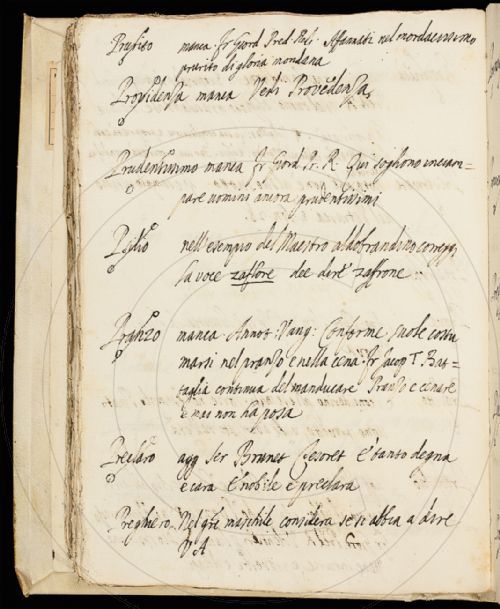 Prurito manca. Fr Giord Pred. Rifi. Affannati nel mordacissimo
prurito di gloria mondana
Providenza manca Vedi Provedenza
Prudentissimo manca Fr Giord Pr. R. Qui sogliono inciam=
pare uomini ancora prudentissimi
nell'esempio del Maestro aldobrandino corregg.
la voce zaffore dee dire zaffrone
Pranzo manca Annot: Vang: Conforme suole costu
marsi nel pranzo e nella cena. Fr Jacop T. Bat=
taglia continua del manducare Pranzo e cenare
e mai non ha posa
Preclaro agg Ser Brunet Tesoret È tanto degna
e cara È nobile e preclara
Preghero Nel gñe maschile considera se si abbia a dire
V. A